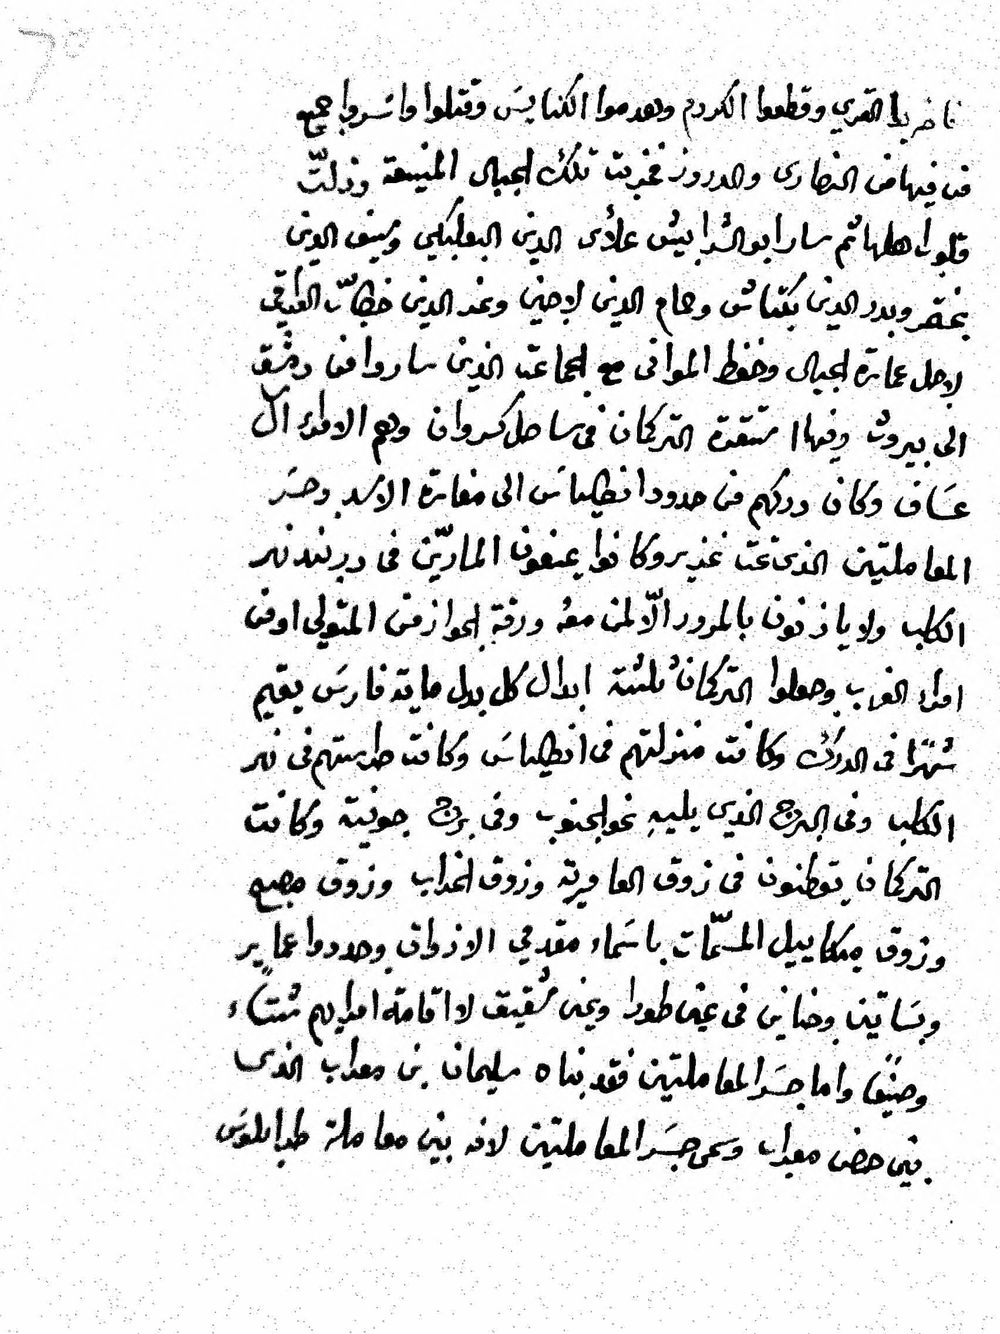 فاخربوا القرى وقطعوا الكروم وهدموا الكنايس وقتلوا واسروا جميع
من فيها من النصارى والدروز فخربت تلك الجبال المنيعة وذلّت
قلوب اهلها ثم سار ابو الشرابيش علاى الدين البعلبكي وسيف الدين
وبدر الدين بكتاش وحسام الدين لاجين وعز الدين خطاب العراقي
لاجل عمارة الجبال وحفظ الموانى مع الجماعة الذين ساروا من دمشق
الى بيروت وفيها استقدة التركمان فى ساحل كسروان وهم الامراء ال
عساف وكان دركهم من حدود انطلياس الى مغارة الاسد وجسر
المعاملتين الذى تحت غزير وكانوا يمنعون المارّين فى دربند نهر
الكلب ولا ياذنون بالمرور الّا لمن معه ورقة الجواز من المتولي او من
امراء الغرب وجعلوا التركمان ثلثة ابدال كل بدل ماية فارس يقيم
شهرًا فى الدرك وكانت منزلتهم فى انطلياس وكانت طارستهم فى نهر
الكلب وفى البرج الذى يليه نحو الجنوب وفى برج جونية وكانت
التركمان يقطنون فى زوق العامرية وزوق الخراب وزوق مصبح
وزوق ميكاييل المسمّات باسماء مقدمي الازواق وحددوا عماير
وبساتين وجناين فى عين طورا وعين شقيق لاقامة امرايهم شتاء
وصيفًا واما جسر المعاملتين فقد بناه سليمان بن معراب الذى
بنى حصن معراب وسمى جسر المعاملتين لانه بين معاملة طرابلوس